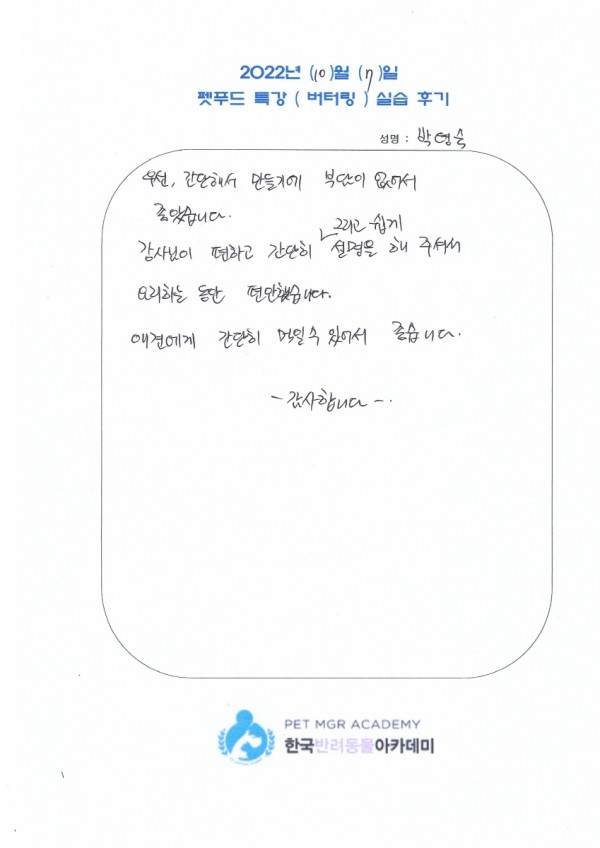 2022년 (10)월 (7)일
펫푸드 특강 ( 버터링 ) 실습 후기
성명 : 박영숙
우선, 간단해서 만들기에 부담이 없어서
좋았습니다.
강사님이 편하고 간단히 그리고 쉽게 설명을 해 주셔서
요리하는 동안 편안했습니다.
애견에게 간단히 먹일 수 있어서 좋습니다.
- 감사합니다 -.
PET MGR ACADEMY
한국반려동물아카데미